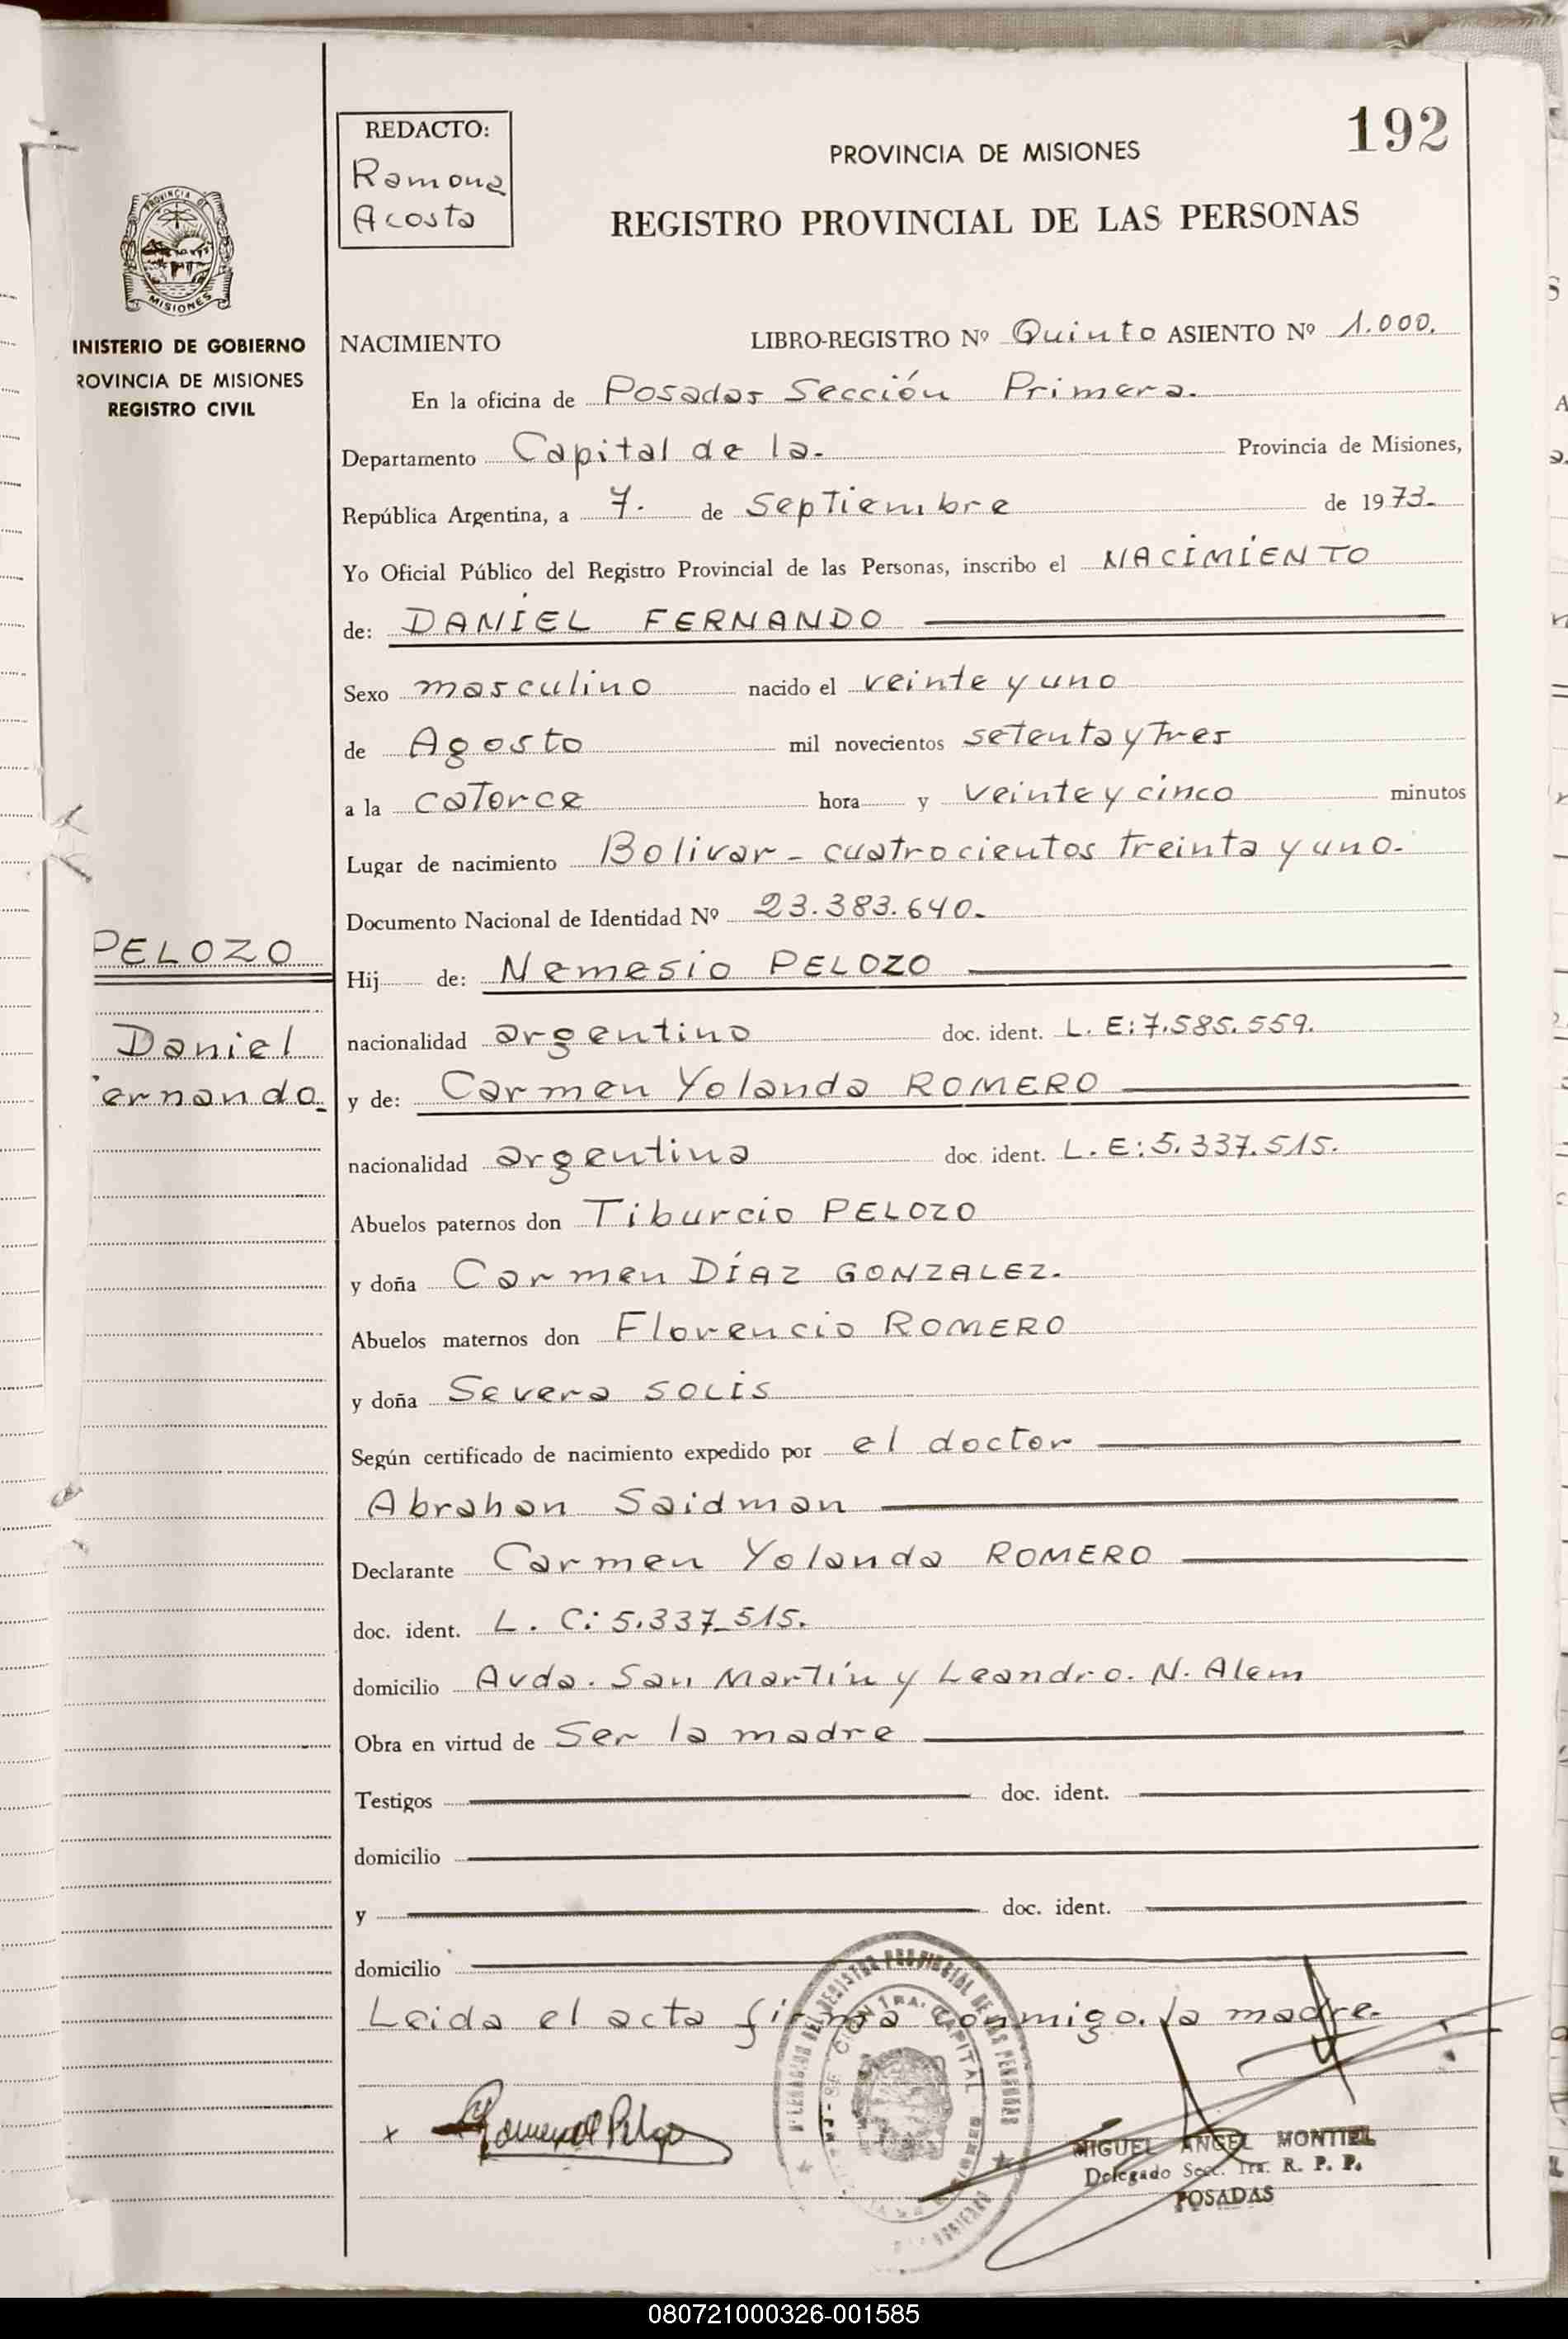 192
REDACTO:
Ramona
Acosta
PROVINCIA DE MISIONES
REGISTRO PROVINCIAL DE LAS PERSONAS
PROVINCIA DE
MISIONES
INISTERIO DE GOBIERNO
ROVINCIA DE MISIONES
REGISTRO CIVIL
NACIMIENTO LIBRO-REGISTRO Nº Quinto ASIENTO Nº 1.000.
En la oficina de Posadas Sección Primera.
Departamento Capital de la. Provincia de Misiones,
República Argentina, a 7. de Septiembre de 1973.
Yo Oficial Público del Registro Provincial de las Personas, inscribo el NACIMIENTO
de: DANIEL FERNANDO
Sexo masculino nacido el veinte y uno
de Agosto mil novecientos setenta y tres
a la catorce hora y veinte y cinco minutos
Lugar de nacimiento Bolivar - cuatrocientos treinta y uno.
Documento Nacional de Identidad Nº 23.383.640.
PELOZO
Hij de: Nemesio PELOZO
Daniel
nacionalidad argentino doc. ident. L. E: 7.585.559.
ernando.
y de: Carmen Yolanda ROMERO
nacionalidad argentina doc. ident. L. E: 5.337.515.
Abuelos paternos don Tiburcio PELOZO
y doña Carmen DÍAZ GONZALEZ.
Abuelos maternos don Florencio ROMERO
y doña Severa SOLIS
Según certificado de nacimiento expedido por el doctor
Abrahan Saidman
Declarante Carmen Yolanda ROMERO
doc. ident. L. C: 5.337.515.
domicilio Avda. San Martín y Leandro. N. Alem
Obra en virtud de Ser la madre
Testigos doc. ident.
domicilio
y doc. ident.
domicilio
Leida el acta firma conmigo. la madre.
x
MIGUEL ANGEL MONTIEL
Delegado Secc. 1ra. R. P. P.
POSADAS
080721000326-001585